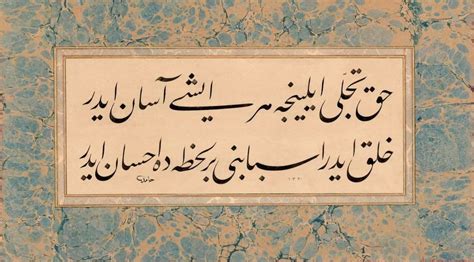 حق تجلّی ایلینجه هر ایشی آسان ایدر
خلق ایدر اسبابنی بر لحظه ده احسان ایدر